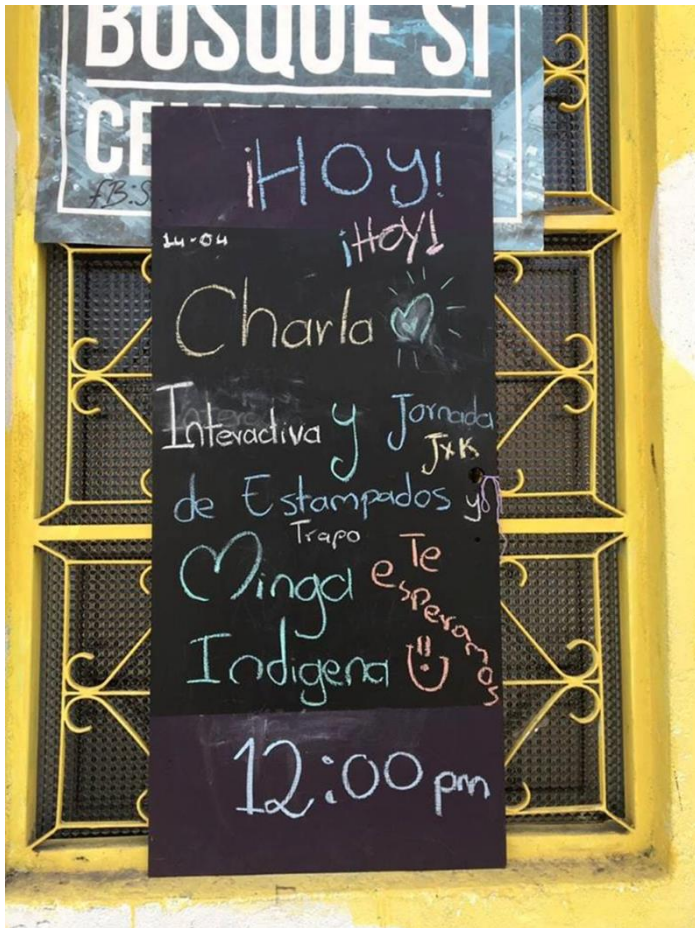 BOSQUE SI
FB:S
¡HOY!
14-04
¡HOY!
Charla
Interactiva y Jornada
JxK
de Estampados y
Trapo
Minga
Indigena
Te
esperamos
12:00 pm